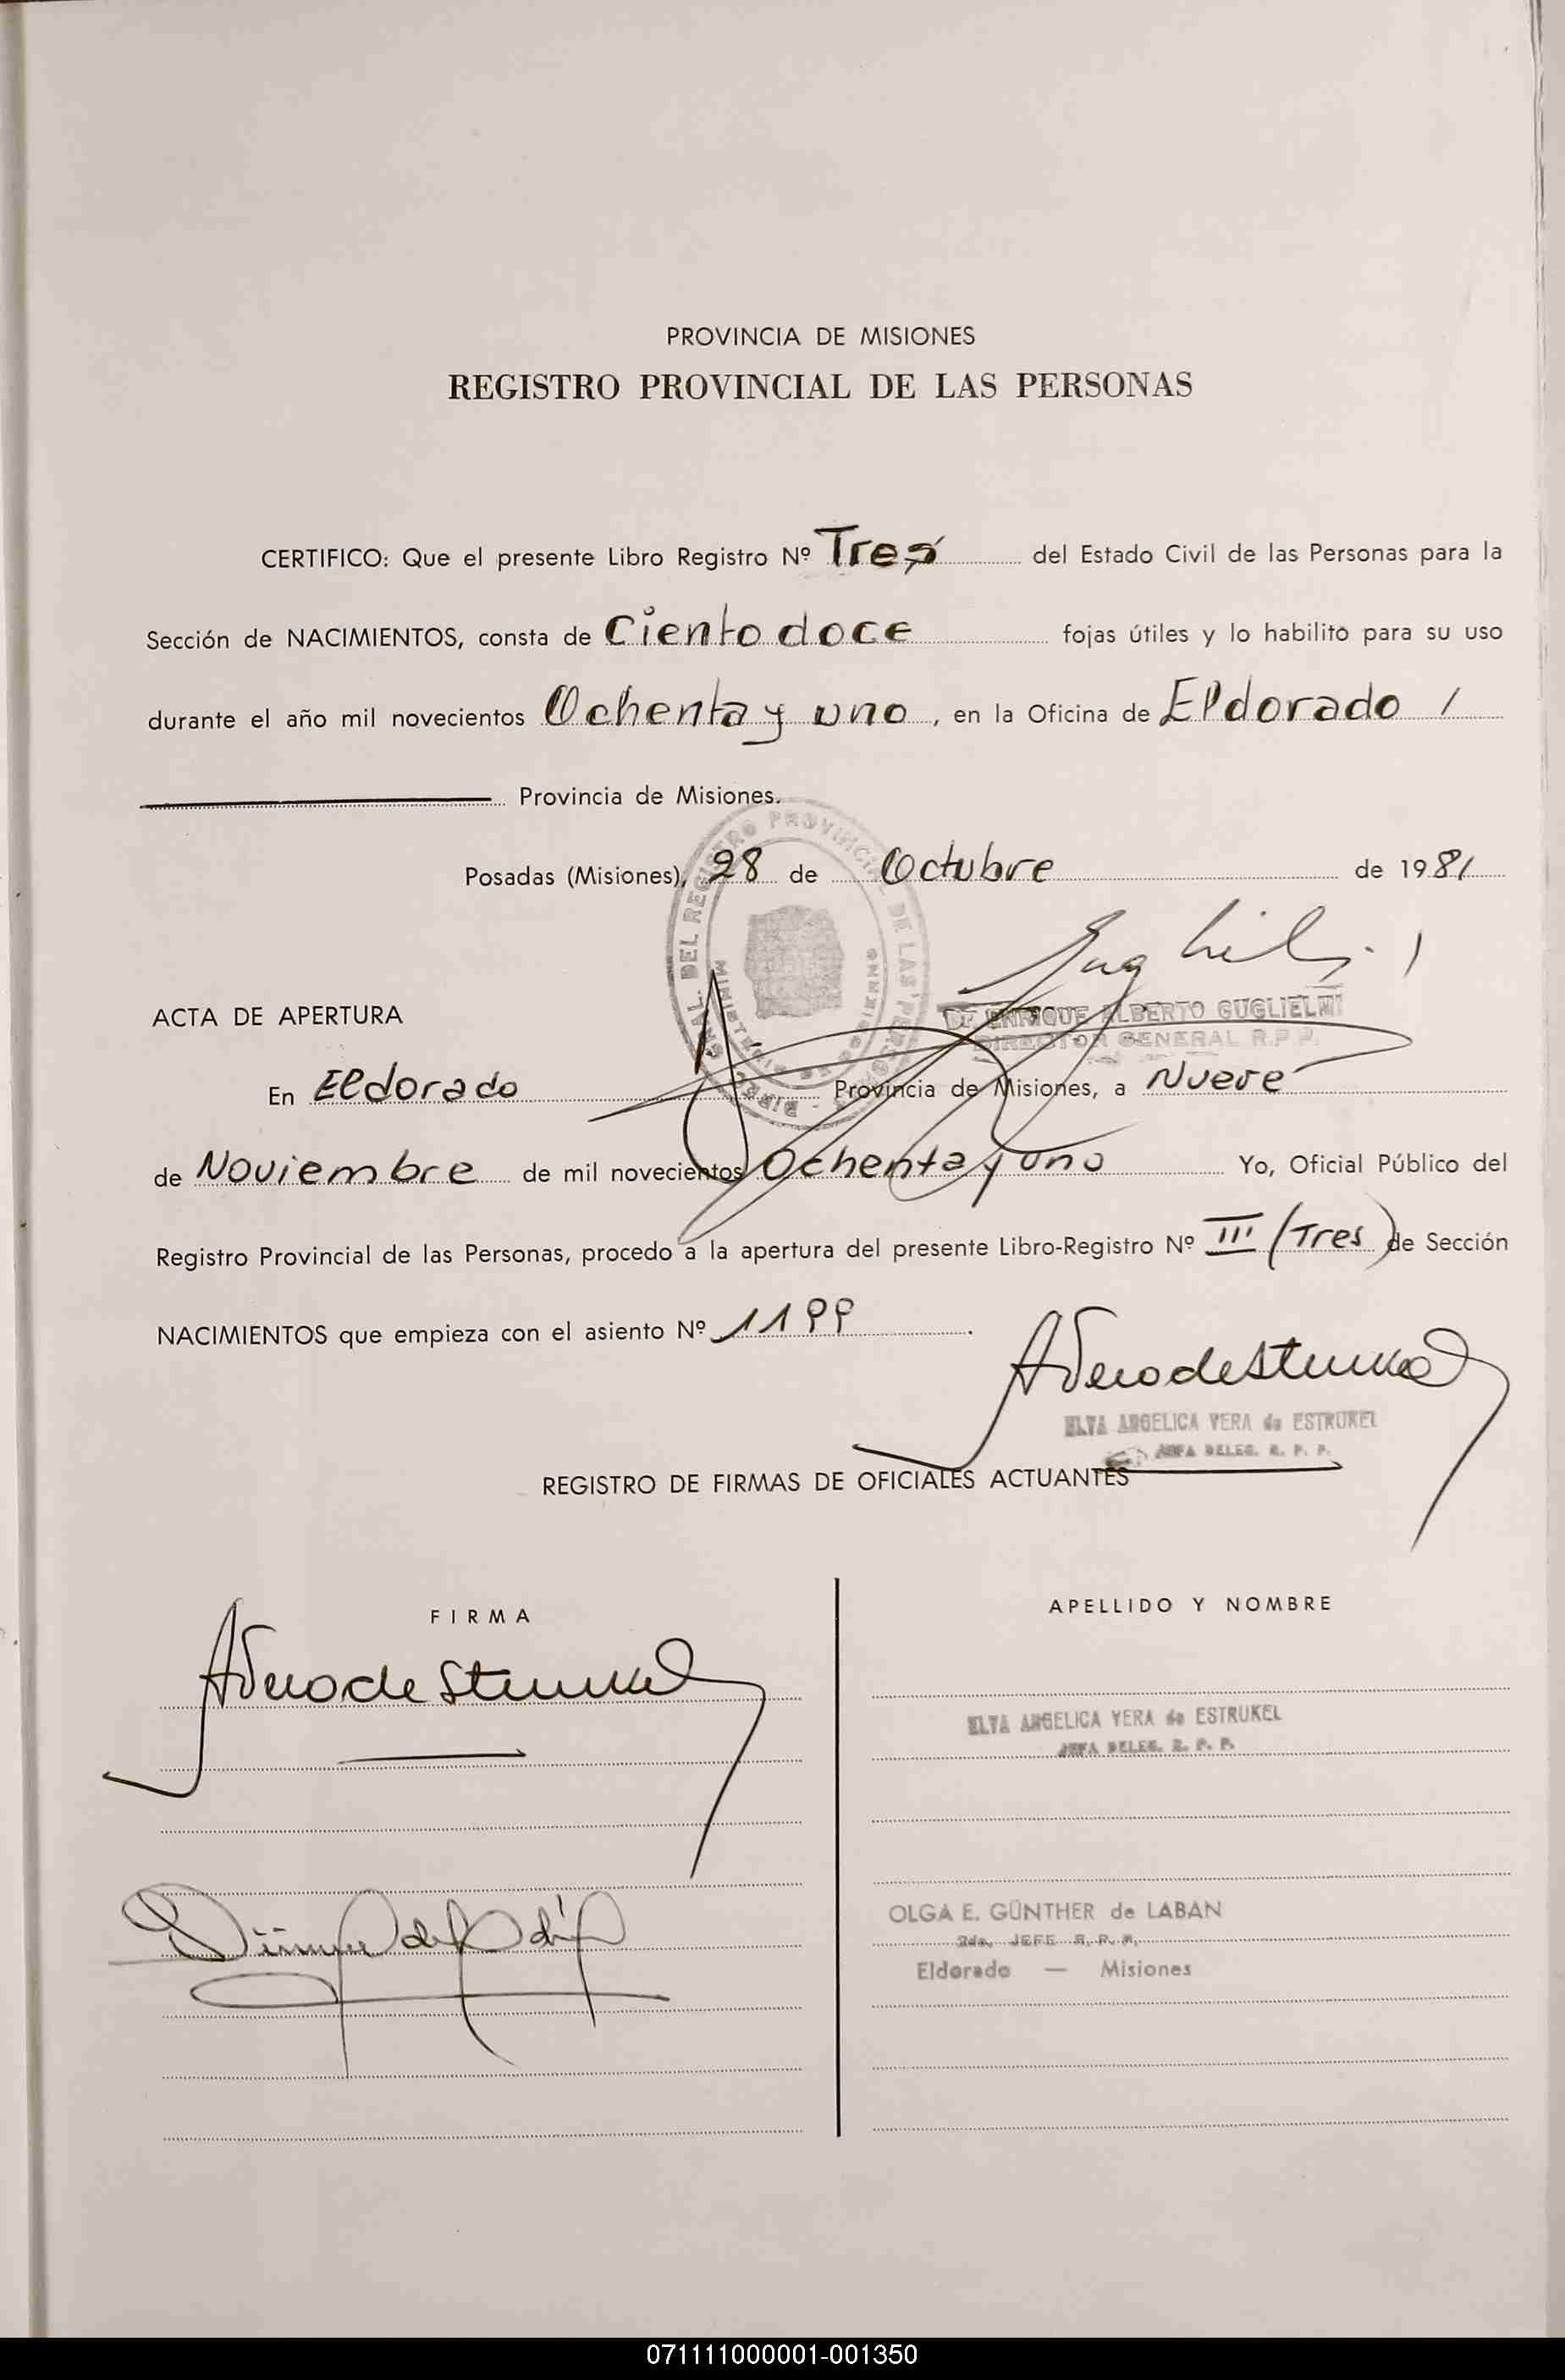 PROVINCIA DE MISIONES
REGISTRO PROVINCIAL DE LAS PERSONAS
CERTIFICO: Que el presente Libro Registro Nº Tres del Estado Civil de las Personas para la
Sección de NACIMIENTOS, consta de Ciento doce fojas útiles y lo habilito para su uso
durante el año mil novecientos Ochenta y uno, en la Oficina de Eldorado /
Provincia de Misiones.
Posadas (Misiones), 28 de Octubre de 1981
DIREC. GRAL. DEL REGISTRO PROVINCIAL DE LAS PERSONAS
MINISTERIO DE GOBIERNO
Dr. ENRIQUE ALBERTO GUGLIELMI
DIRECTOR GENERAL R.P.P.
ACTA DE APERTURA
En Eldorado Provincia de Misiones, a Nueve
de Noviembre de mil novecientos Ochenta y uno Yo, Oficial Público del
Registro Provincial de las Personas, procedo a la apertura del presente Libro-Registro Nº III (Tres) de Sección
NACIMIENTOS que empieza con el asiento Nº 1199.
ELVA ANGELICA VERA de ESTRUKEL
JEFA DELEG. R. P. P.
REGISTRO DE FIRMAS DE OFICIALES ACTUANTES
FIRMA
APELLIDO Y NOMBRE
ELVA ANGELICA VERA de ESTRUKEL
JEFA DELEG. R. P. P.
OLGA E. GÜNTHER de LABAN
2da. JEFE R. P. P.
Eldorado — Misiones
071111000001-001350